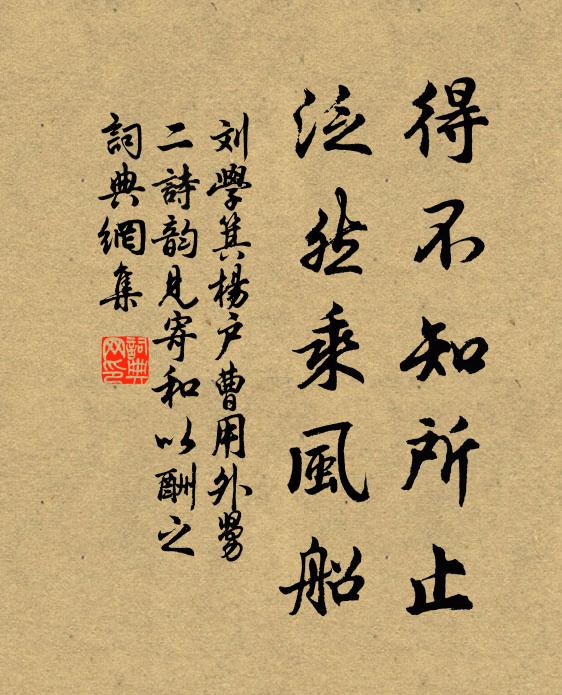 得不知所止
泛然乘風船
刘學箕楊户曹用外舅
二詩韵見寄和以酬之
詞典網集
詞典
网印